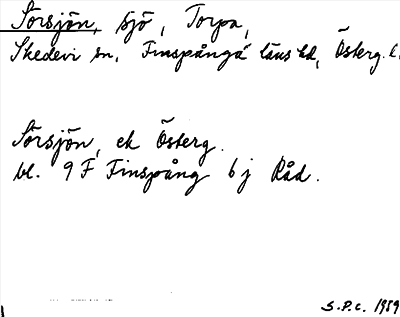 Sörsjön, sjö, Torpa,
Skedevi sn, Finspånga läns hd, Österg. l.
Sörsjön, ek Österg.
bl. 9 F Finspång 6 j Råd.
S.P.C. 1989